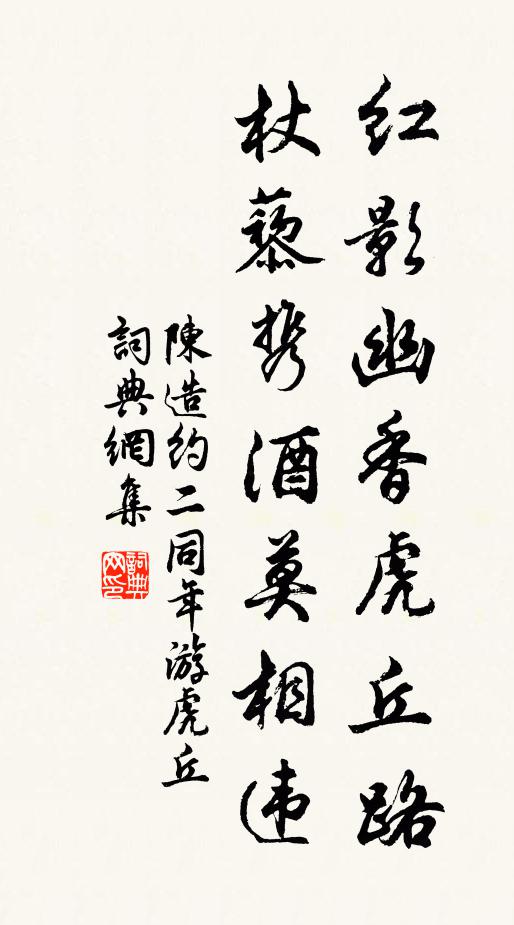 红影幽香虎丘路
杖藜携酒莫相违
陳造约二同年游虎丘
詞典網集
詞典网印